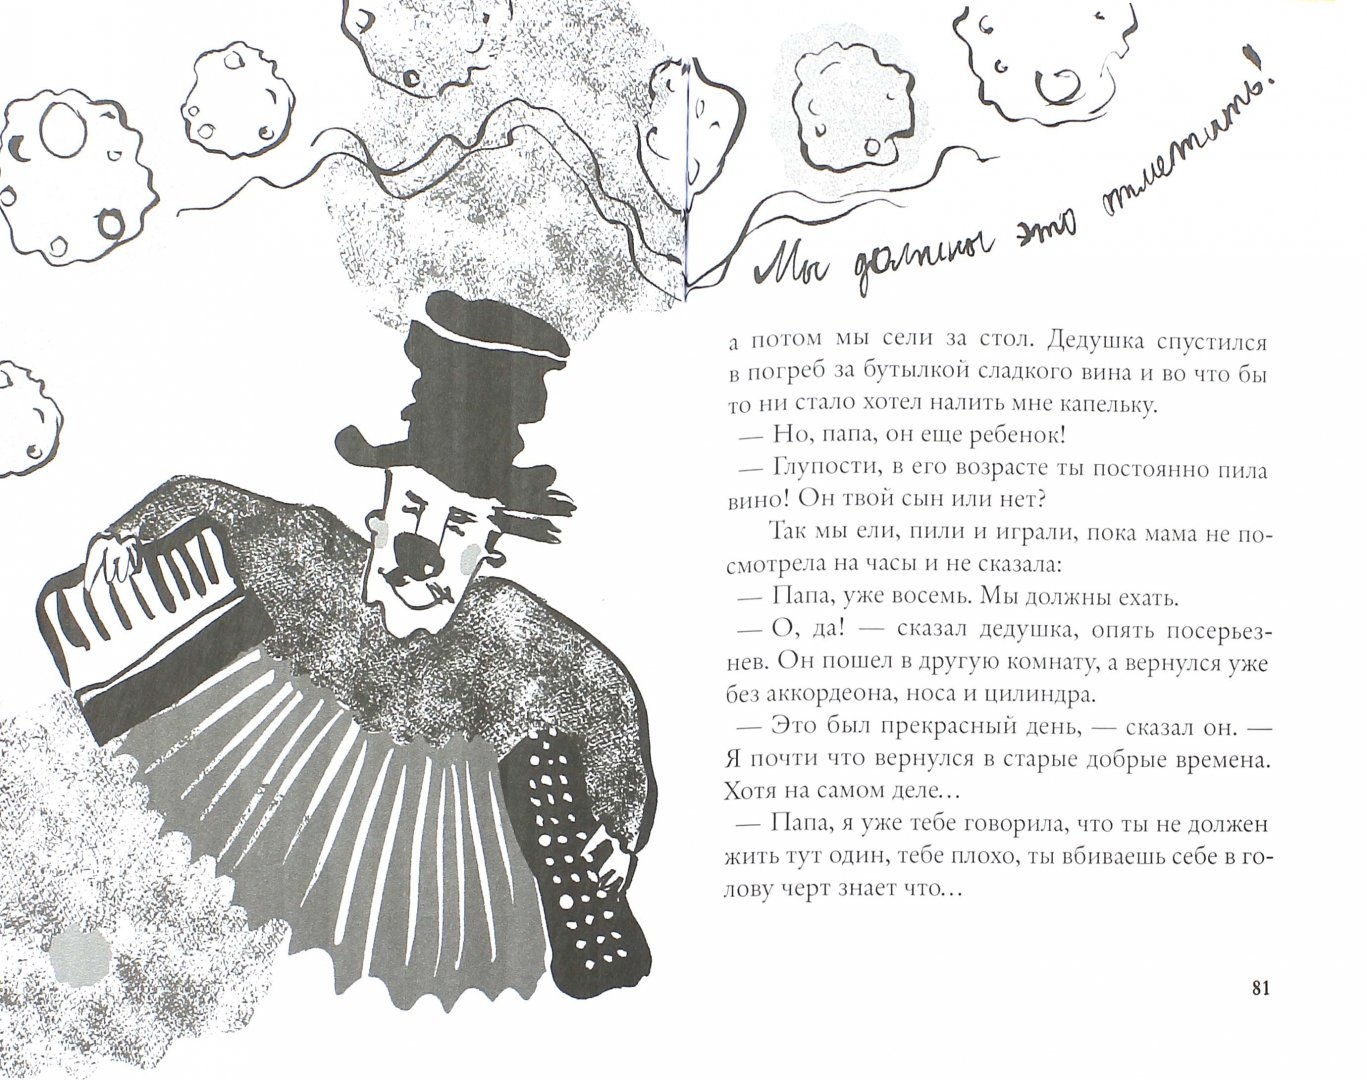 Мы должны это отметить!
а потом мы сели за стол. Дедушка спустился
в погреб за бутылкой сладкого вина и во что бы
то ни стало хотел налить мне капельку.
— Но, папа, он еще ребенок!
— Глупости, в его возрасте ты постоянно пила
вино! Он твой сын или нет?
Так мы ели, пили и играли, пока мама не по-
смотрела на часы и не сказала:
— Папа, уже восемь. Мы должны ехать.
— О, да! — сказал дедушка, опять посерьез-
нев. Он пошел в другую комнату, а вернулся уже
без аккордеона, носа и цилиндра.
— Это был прекрасный день, — сказал он. —
Я почти что вернулся в старые добрые времена.
Хотя на самом деле…
— Папа, я уже тебе говорила, что ты не должен
жить тут один, тебе плохо, ты вбиваешь себе в го-
лову черт знает что…
81